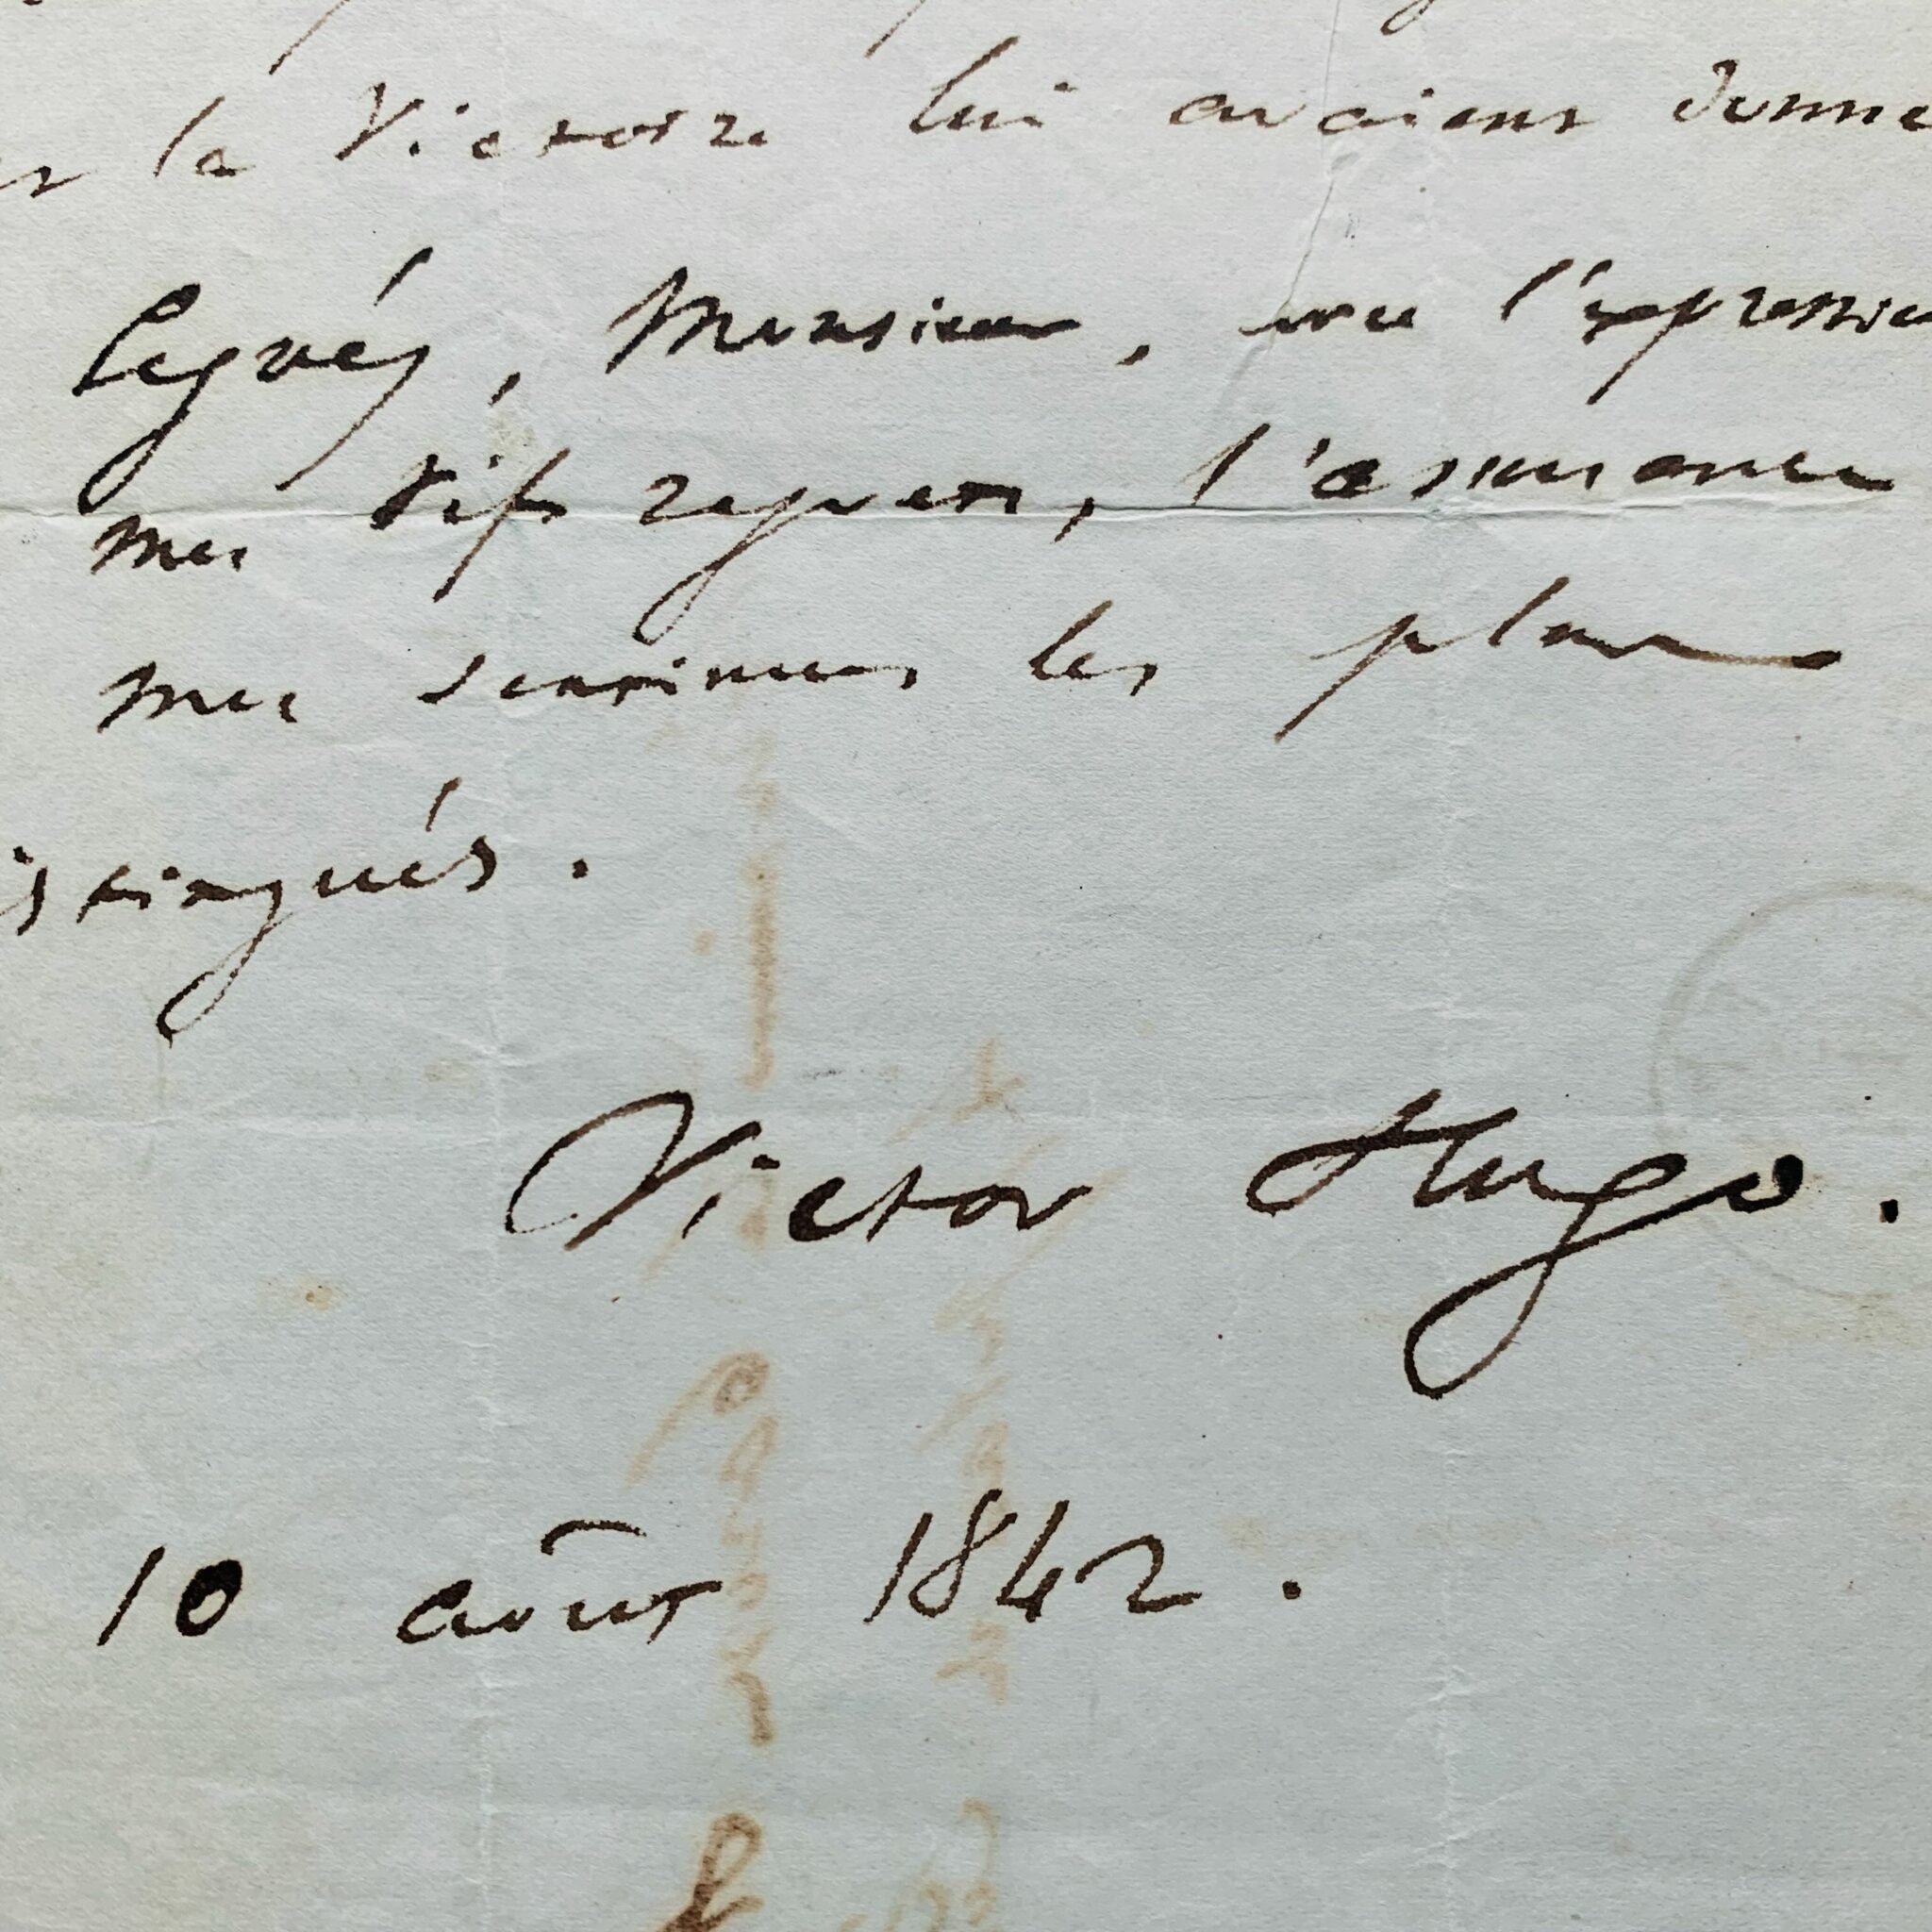 la Victoire lui avaient donné
Agréez, Monsieur, avec l'expression
mes vifs regrets, l'assurance
mes sentiments les plus
istingués.
Victor Hugo.
10 août 1842.